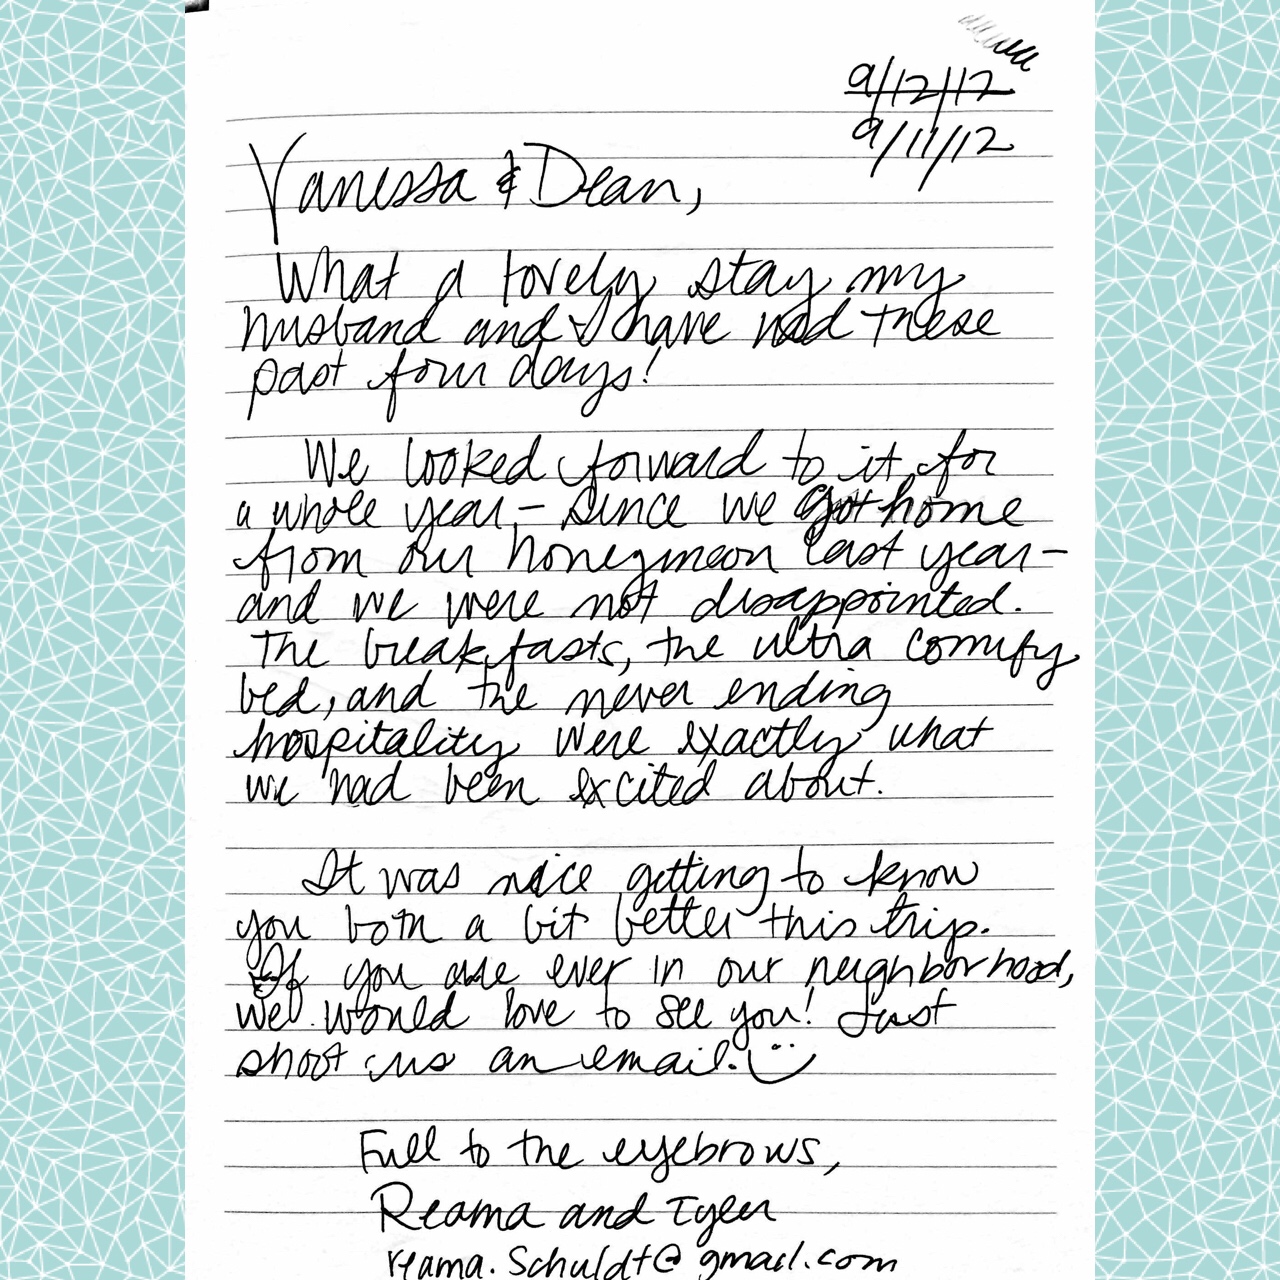 9/12/12
9/11/12
Vanessa & Dean,
What a lovely stay my
husband and I have had these
past four days!
We looked forward to it for
a whole year - since we got home
from our honeymoon last year -
and we were not disappointed.
The breakfasts, the ultra comfy
bed, and the never ending
hospitality were exactly what
we had been excited about.
It was nice getting to know
you both a bit better this trip.
If you are ever in our neighborhood,
we would love to see you! Just
shoot us an email. :)
Full to the eyebrows,
Reama and Tyler
reama.schuldt@gmail.com